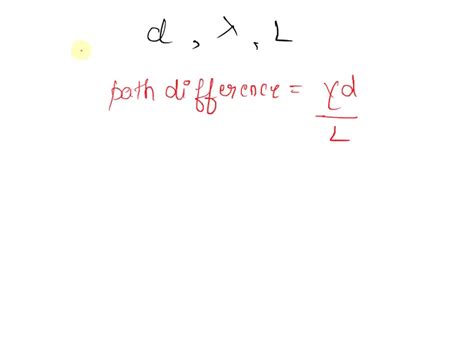 d, λ, L
path difference = yd
L